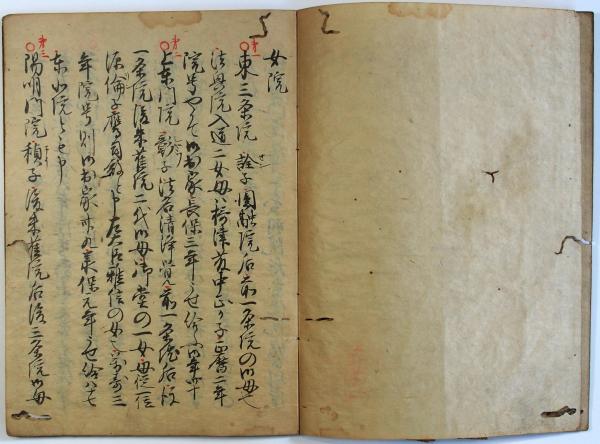 女院
第一
東三条院 詮子 円融院后 前一条院の御母也
法興院入道二女母ハ摂津守中正の子正暦二年
院号やかて御出家長保三年うせ給ふ御年四十
第二
上東門院 彰子 法名清浄覚 前一条院后後
一条院後朱雀院二代御母御堂の一女母従一位
源倫子鷹司殿と申左大臣雅信の女也万寿三
年院号則御出家承保元年うせ給八十七
東北院とも申
第三
陽明門院 禎子 後朱雀院后後三条院御母